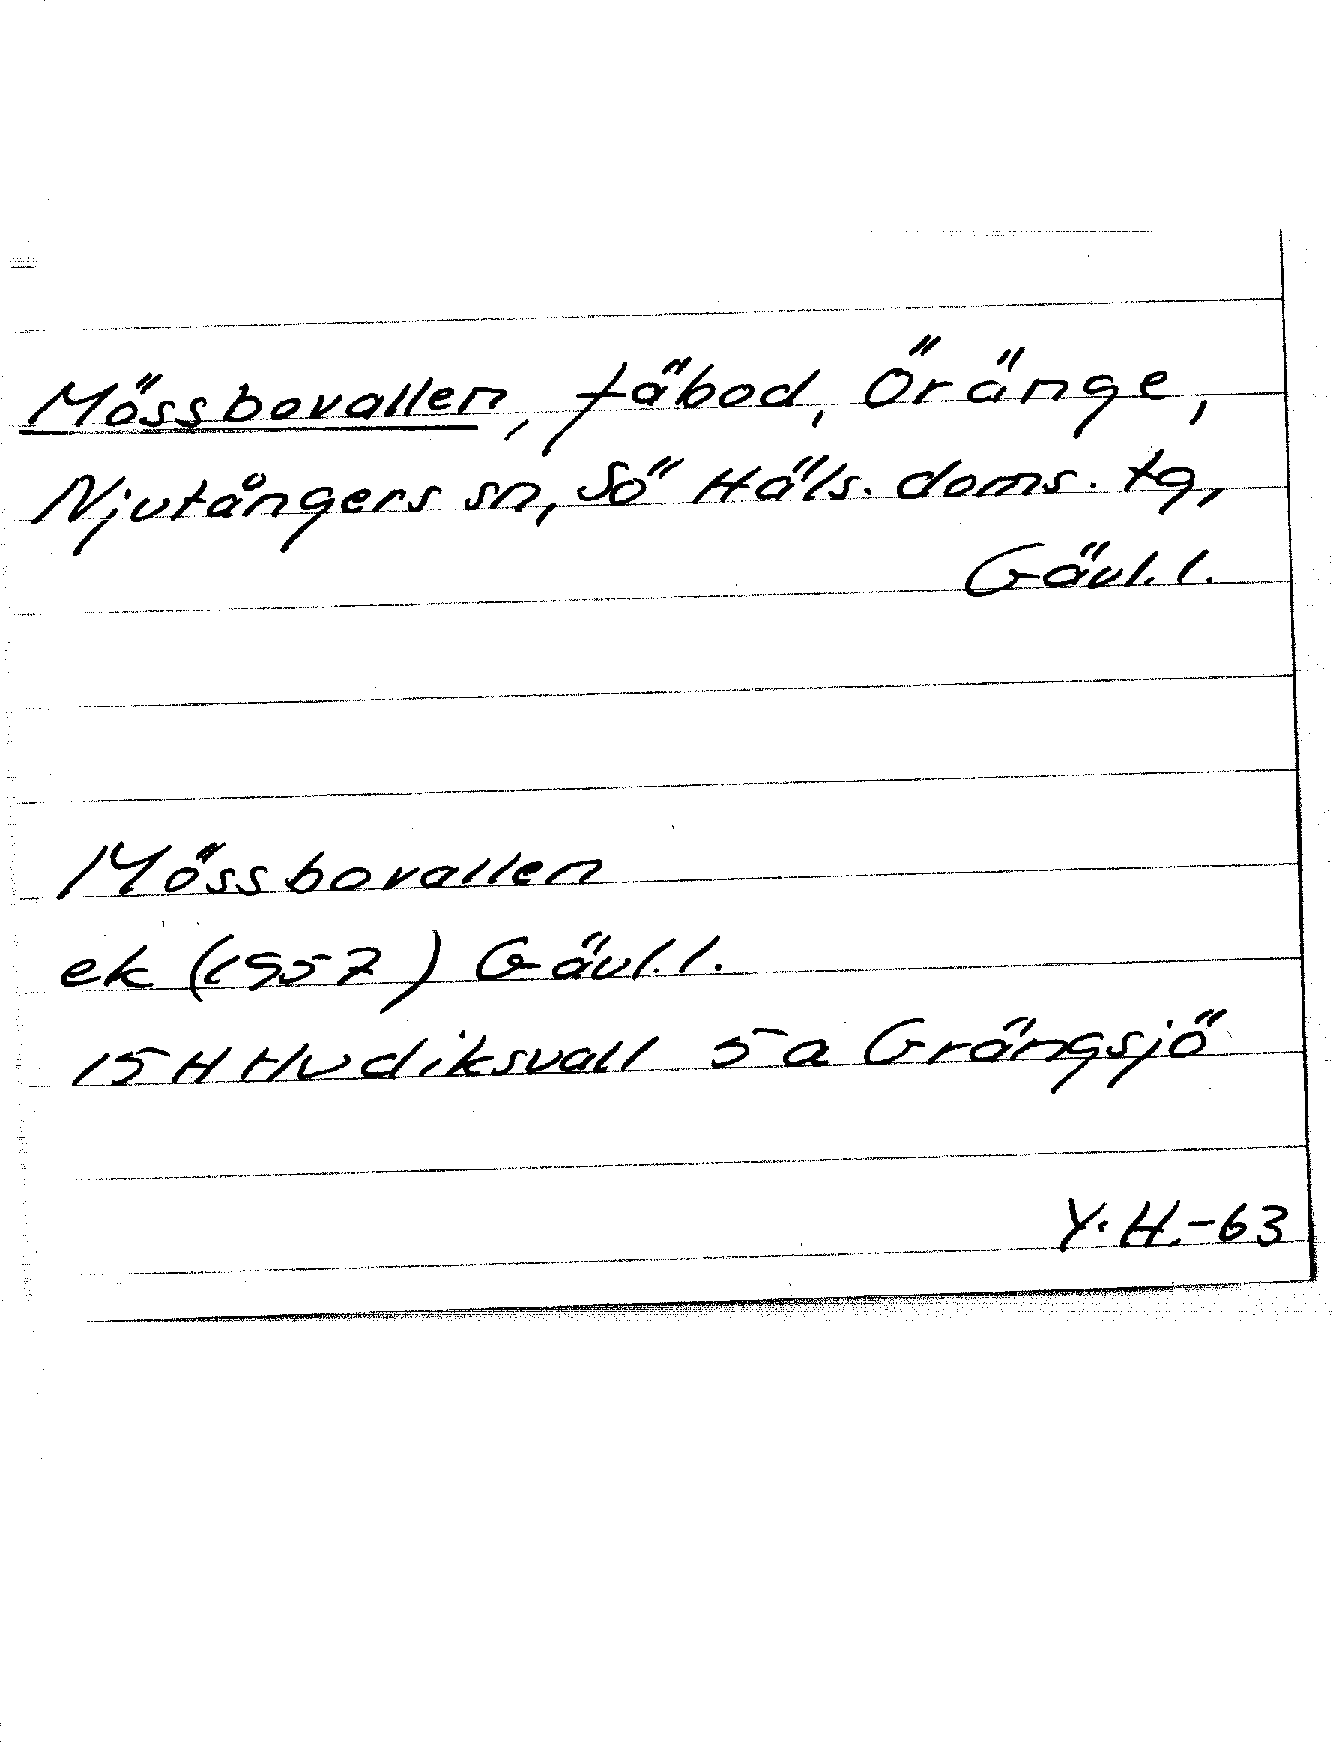 Mössbovallen, fäbod, Öränge,
Njutångers sn, Sö Häls. doms. tg,
Gävl. l.
Mössbovallen
ek (1957) Gävl. l.
15 H Hudiksvall 5 a Grängsjö
Y. H. -63